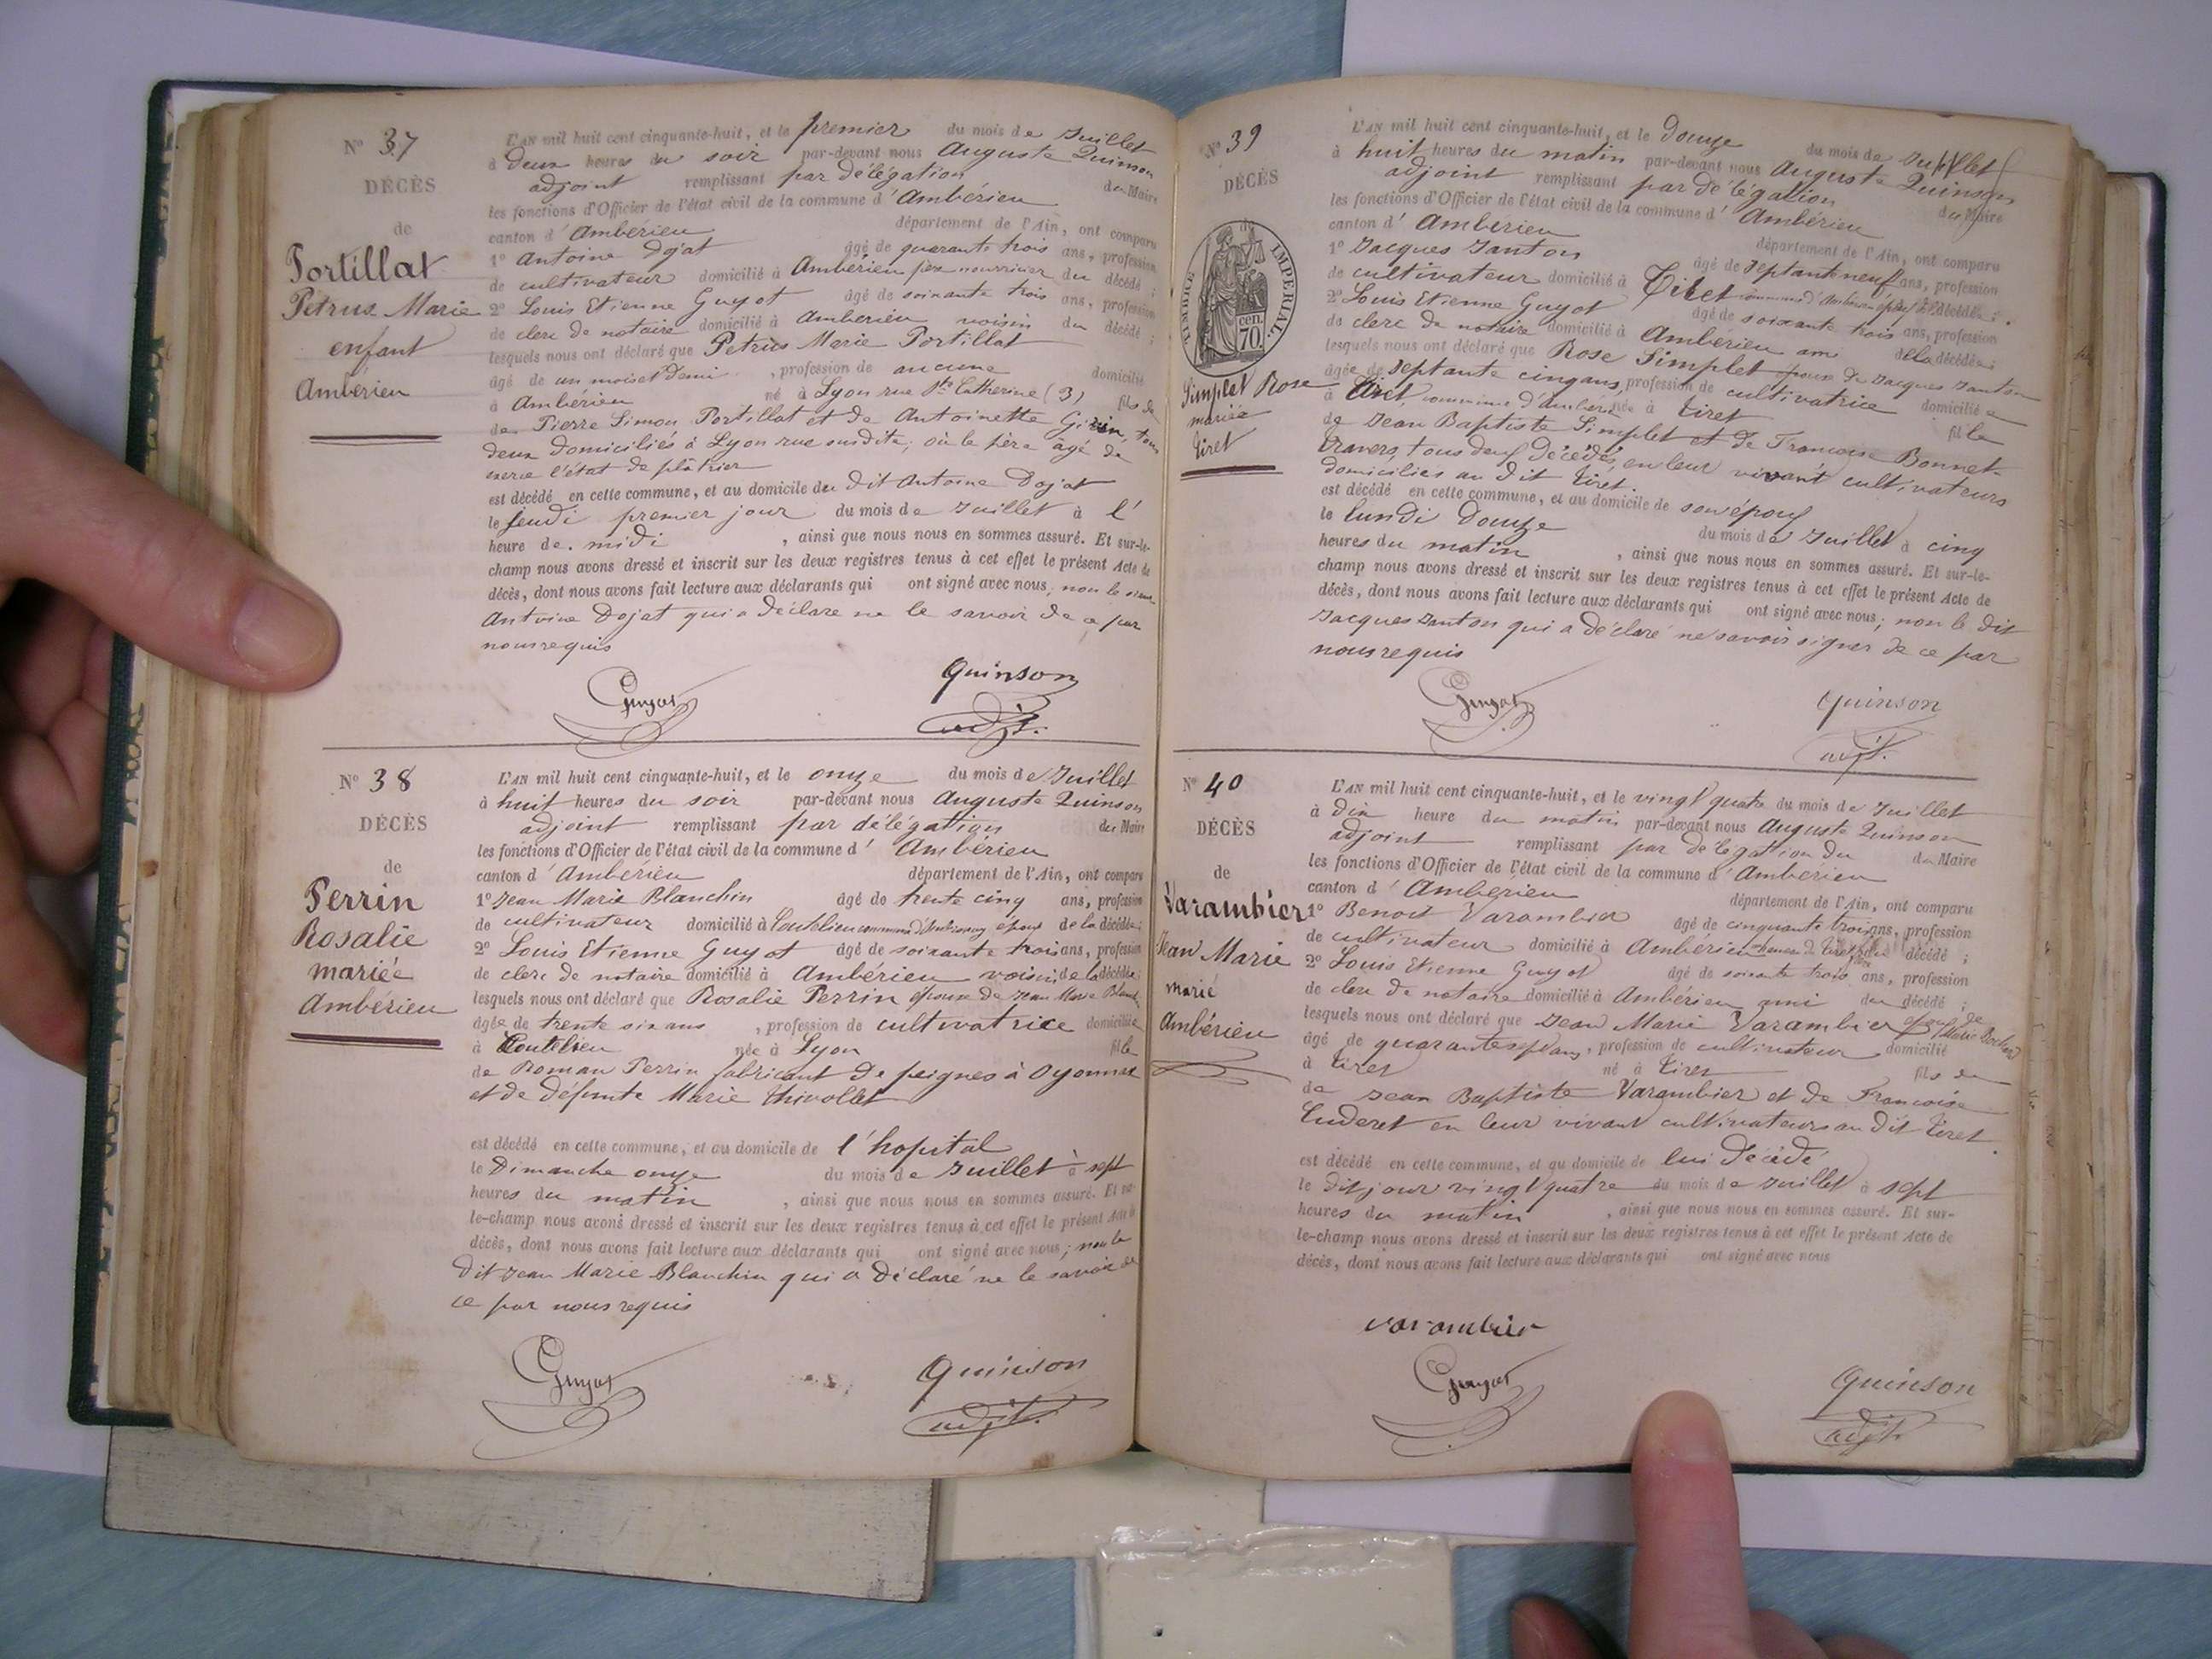 N° 37
DÉCÈS
de
Portillat
Petrus Marie
enfant
Ambérieu
L'AN mil huit cent cinquante-huit, et le premier du mois de Juillet
à deux heures du soir par-devant nous Auguste Quinson
adjoint remplissant par délégation du Maire
les fonctions d'Officier de l'état civil de la commune d'Ambérieu
canton d'Ambérieu département de l'Ain, ont comparu
1° Antoine Dojat âgé de quarante trois ans, profession
de cultivateur domicilié à Ambérieu père nourricier du décédé ;
2° Louis Etienne Guyot âgé de soixante trois ans, profession
de clerc de notaire domicilié à Ambérieu voisin du décédé ;
lesquels nous ont déclaré que Petrus Marie Portillat
âgé de un mois et demi , profession de aucune domicilié
à Ambérieu né à Lyon rue Ste Catherine (3) fils de
de Pierre Simon Portillat et de Antoinette Girin, tous
deux domiciliés à Lyon rue susdite, où le père âgé de
exerce l'état de plâtrier
est décédé en cette commune, et au domicile du dit Antoine Dojat
le Jeudi premier jour du mois de Juillet à l'
heure de midi , ainsi que nous nous en sommes assuré. Et sur-le-
champ nous avons dressé et inscrit sur les deux registres tenus à cet effet le présent Acte de
décès, dont nous avons fait lecture aux déclarants qui ont signé avec nous, non le sieur
Antoine Dojat qui a déclaré ne le savoir de ce par
nous requis
Guyot Quinson
adjt.
N° 38
DÉCÈS
de
Perrin
Rosalie
mariée
Ambérieu
L'AN mil huit cent cinquante-huit, et le onze du mois de Juillet
à huit heures du soir par-devant nous Auguste Quinson
adjoint remplissant par délégation du Maire
les fonctions d'Officier de l'état civil de la commune d'Ambérieu
canton d'Ambérieu département de l'Ain, ont comparu
1° Jean Marie Blanchin âgé de trente cinq ans, profession
de cultivateur domicilié à Coutelieu commune d'Ambronay époux de la décédée ;
2° Louis Etienne Guyot âgé de soixante trois ans, profession
de clerc de notaire domicilié à Ambérieu voisin de la décédée ;
lesquels nous ont déclaré que Rosalie Perrin épouse de Jean Marie Blanch
âgée de trente six ans , profession de cultivatrice domiciliée
à Coutelieu née à Lyon fille
de Roman Perrin fabricant de peignes à Oyonnax
et de défunte Marie Thivollet
est décédé en cette commune, et au domicile de l'hopital
le Dimanche onze du mois de Juillet à sept
heures du matin , ainsi que nous nous en sommes assuré. Et sur-
le-champ nous avons dressé et inscrit sur les deux registres tenus à cet effet le présent Acte de
décès, dont nous avons fait lecture aux déclarants qui ont signé avec nous ; non le
dit Jean Marie Blanchin qui a déclaré ne le savoir de
ce par nous requis
Guyot Quinson
adjt.
N° 39
DÉCÈS
TIMBRE IMPÉRIAL
70 cen.
Simplet Rose
mariée
Tiret
L'AN mil huit cent cinquante-huit, et le douze du mois de Juillet
à huit heures du matin par-devant nous Auguste Quinson
adjoint remplissant par délégation du Maire
les fonctions d'Officier de l'état civil de la commune d'Ambérieu
canton d'Ambérieu département de l'Ain, ont comparu
1° Jacques Janton âgé de septante neuf ans, profession
de cultivateur domicilié à Tiret commune d'Ambérieu époux de la décédée ;
2° Louis Etienne Guyot âgé de soixante trois ans, profession
de clerc de notaire domicilié à Ambérieu ami de la décédée ;
lesquels nous ont déclaré que Rose Simplet épouse de Jacques Janton
âgée de septante cinq ans, profession de cultivatrice domiciliée
à Tiret commune d'Ambérieu née à Tiret fille
de Jean Baptiste Simplet et de Françoise Bonnet
Travers, tous deux décédés, en leur vivant cultivateurs
domiciliés au dit Tiret.
est décédé en cette commune, et au domicile de son époux
le lundi douze du mois de Juillet à cinq
heures du matin , ainsi que nous nous en sommes assuré. Et sur-le-
champ nous avons dressé et inscrit sur les deux registres tenus à cet effet le présent Acte de
décès, dont nous avons fait lecture aux déclarants qui ont signé avec nous ; non le dit
Jacques Janton qui a déclaré ne savoir signer de ce par
nous requis
Guyot Quinson
adjt.
N° 40
DÉCÈS
de
Varambier
Jean Marie
marié
Ambérieu
L'AN mil huit cent cinquante-huit, et le vingt quatre du mois de Juillet
à dix heure du matin par-devant nous Auguste Quinson
adjoint remplissant par délégation du du Maire
les fonctions d'Officier de l'état civil de la commune d'Ambérieu
canton d'Ambérieu département de l'Ain, ont comparu
1° Benoit Varambier âgé de cinquante trois ans, profession
de cultivateur domicilié à Ambérieu hameau de Tiret frère du décédé ;
2° Louis Etienne Guyot âgé de soixante trois ans, profession
de clerc de notaire domicilié à Ambérieu ami du décédé ;
lesquels nous ont déclaré que Jean Marie Varambier époux de Marie
âgé de quarante sept ans, profession de cultivateur domicilié
à Tiret né à Tiret fils de
de Jean Baptiste Varambier et de Françoise
Luderet en leur vivant cultivateurs au dit Tiret.
est décédé en cette commune, et au domicile de lui décédé
le dit jour vingt quatre du mois de Juillet à sept
heures du matin , ainsi que nous nous en sommes assuré. Et sur-
le-champ nous avons dressé et inscrit sur les deux registres tenus à cet effet le présent Acte de
décès, dont nous avons fait lecture aux déclarants qui ont signé avec nous
varambier
Guyot Quinson
adjt.